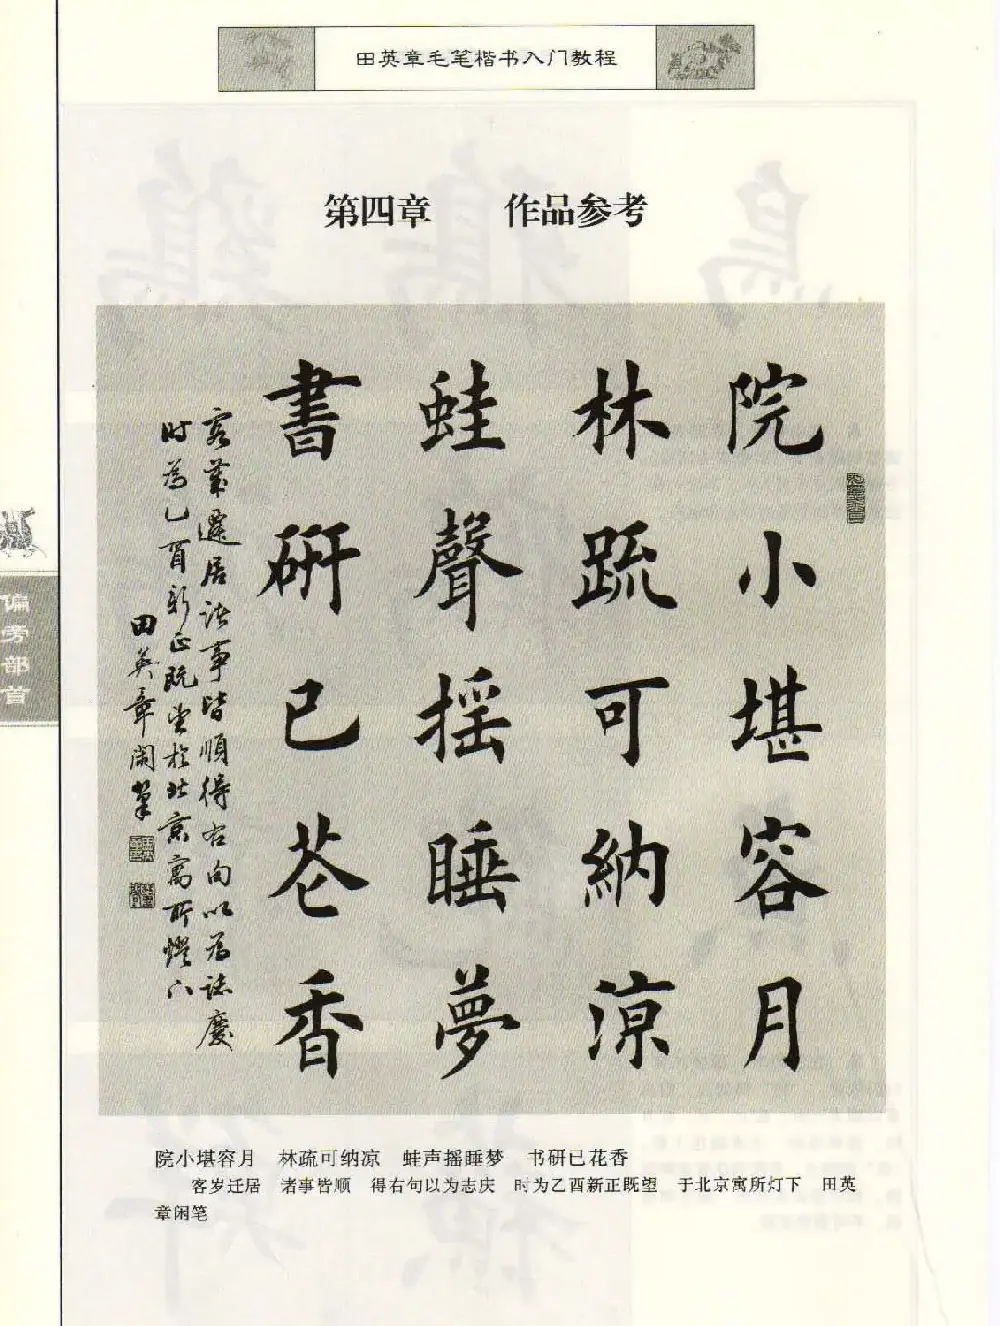 田英章毛笔楷书入门教程
第四章 作品参考
院小堪容月
林疏可納涼
蛙聲摇睡夢
書研已花香
客歲遷居諸事皆順得右句以為誌慶
时為乙酉新正既望於北京寓所燈下
田英章閑筆
偏旁部首
院小堪容月 林疏可纳凉 蛙声摇睡梦 书研已花香
客岁迁居 诸事皆顺 得右句以为志庆 时为乙酉新正既望 于北京寓所灯下 田英
章闲笔